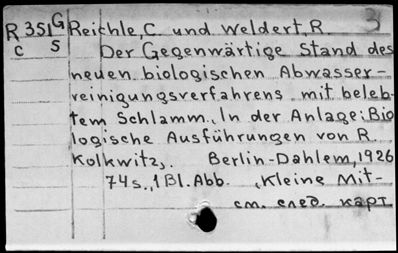 R 351 G Reichle, C. und Weldert, R. 3
c s Der Gegenwärtige Stand des
neuen biologischen Abwasser-
reinigungsverfahrens mit beleb-
tem Schlamm. In der Anlage: Bio
logische Ausführungen von R.
Kolkwitz,. Berlin-Dahlem, 1926
74 s., 1 Bl. Abb. (Kleine Mit-
см. след. карт.